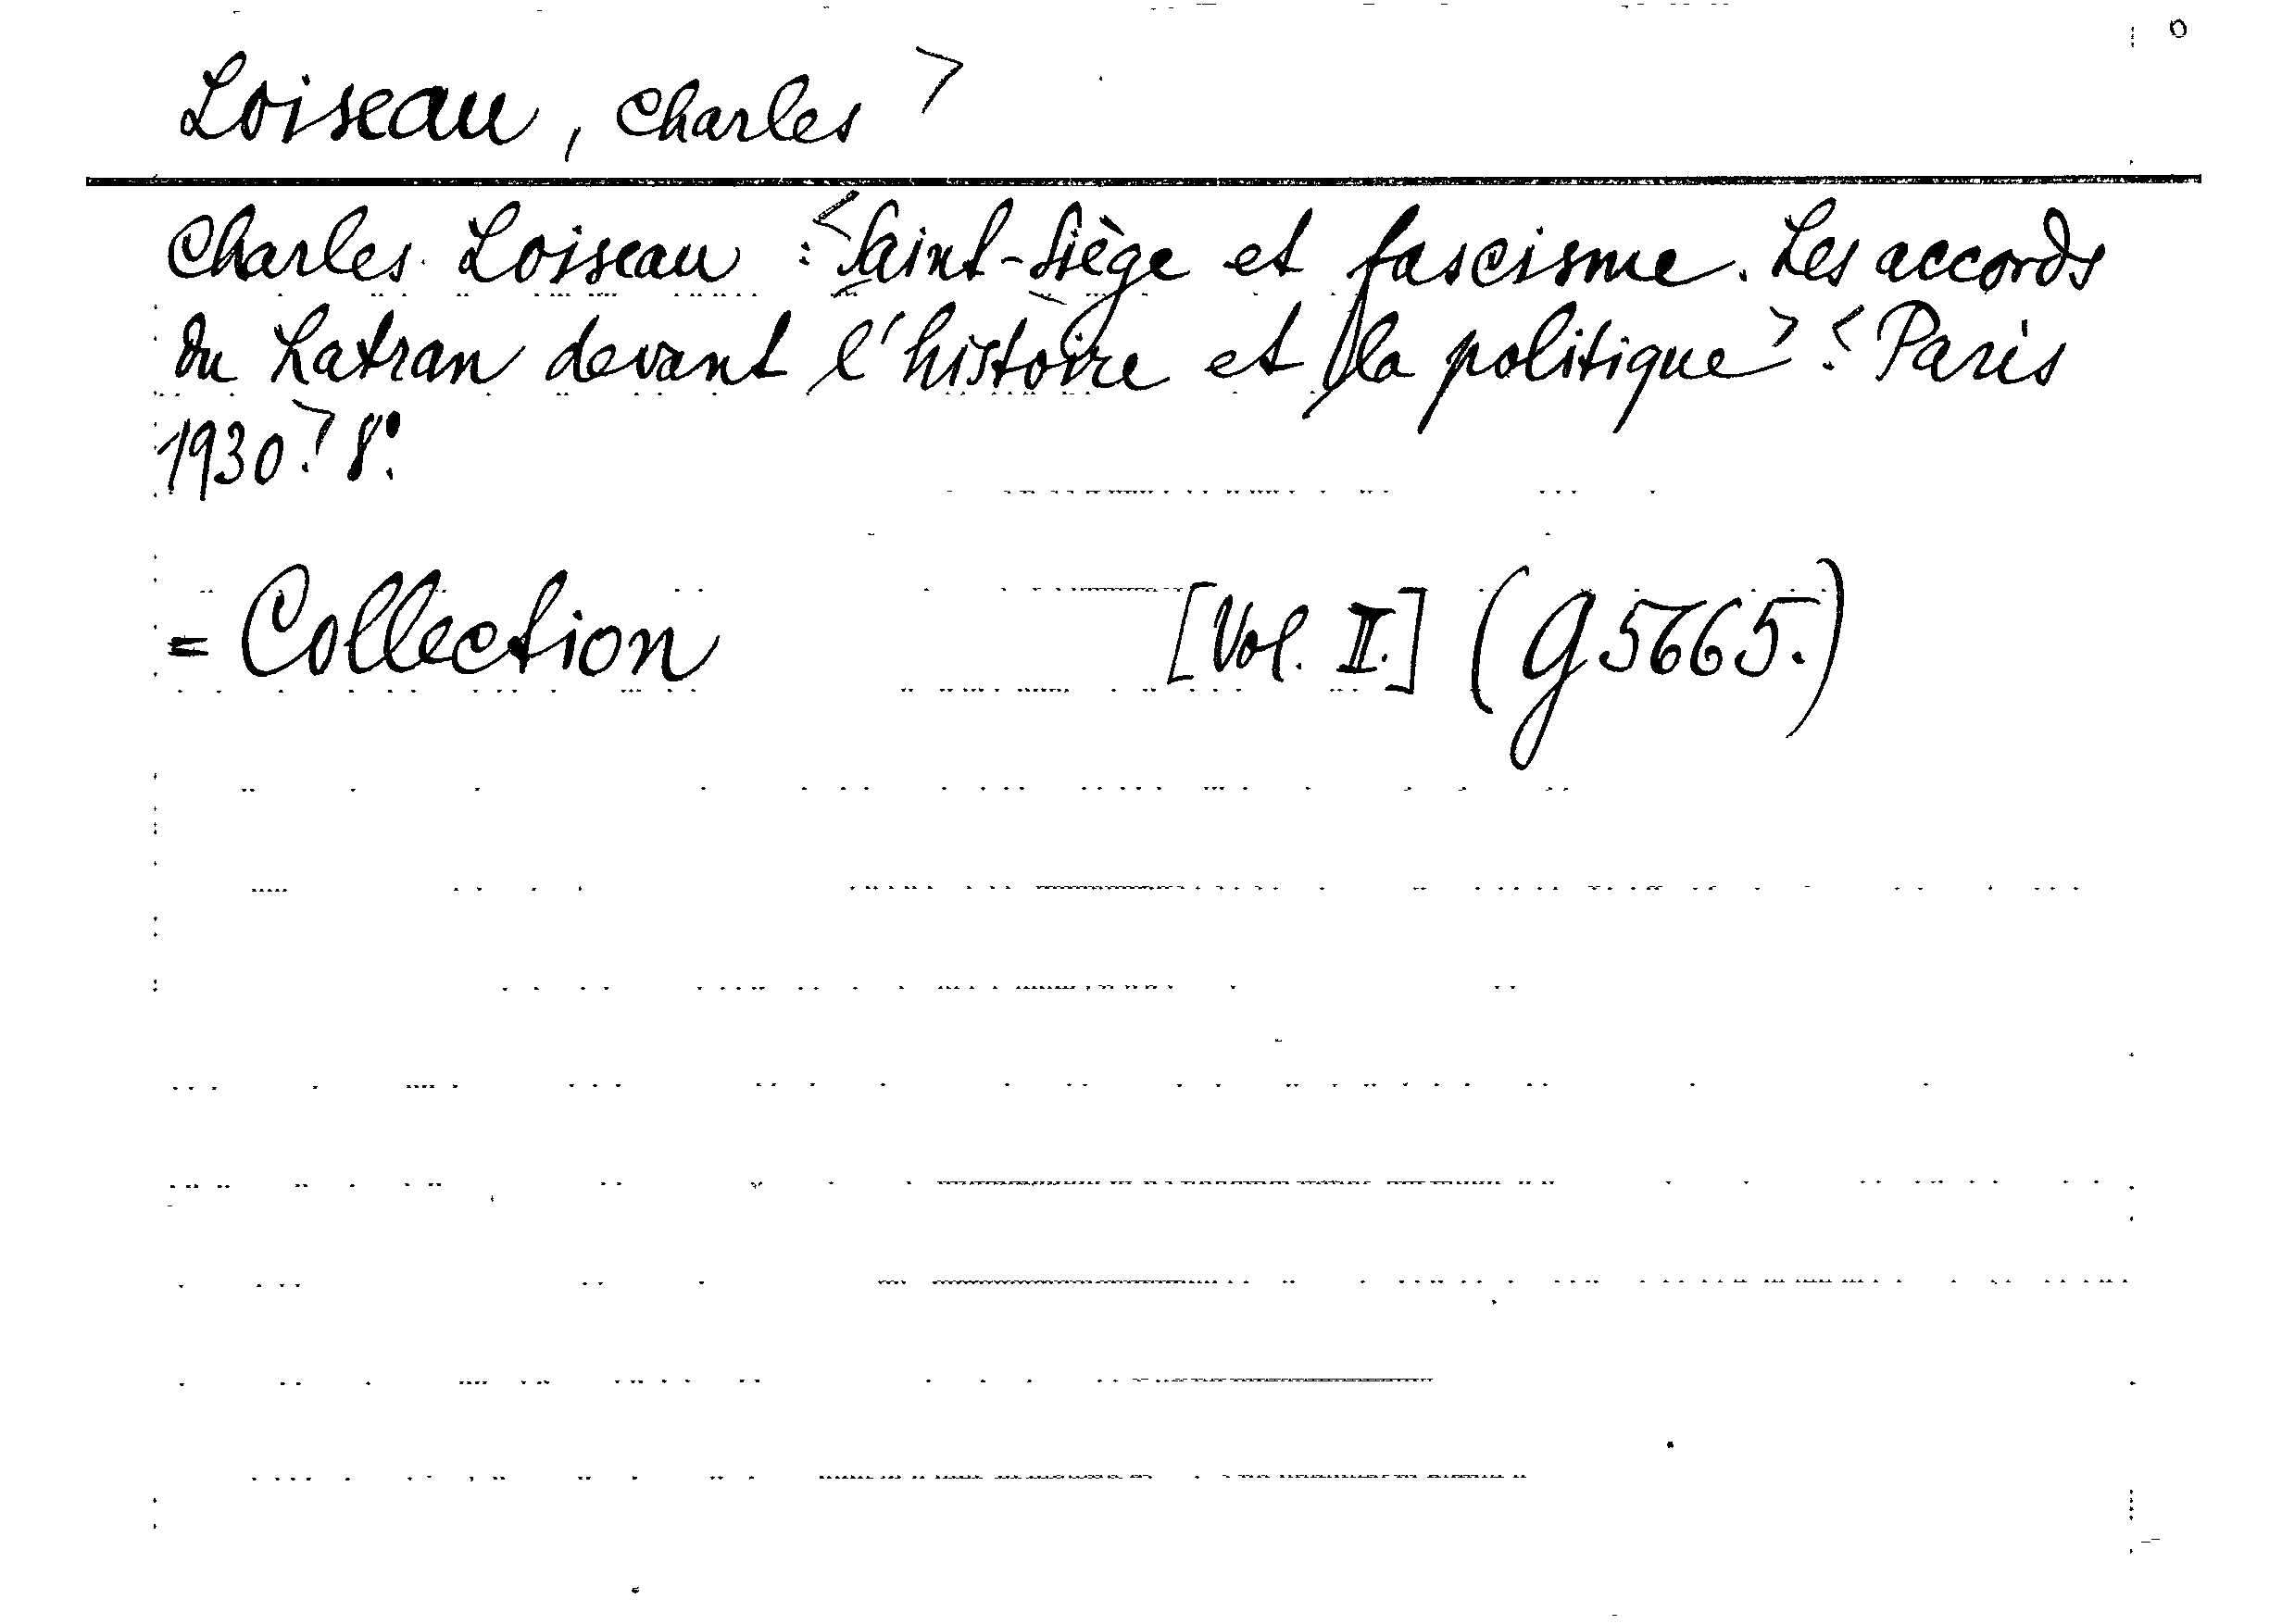 Loiseau, Charles >
Charles Loiseau : <Saint-Siège et fascisme. Les accords
du Latran devant l'histoire et la politique>. <Paris
1930.> 8°.
= Collection [Vol. II.] (G 5665.)